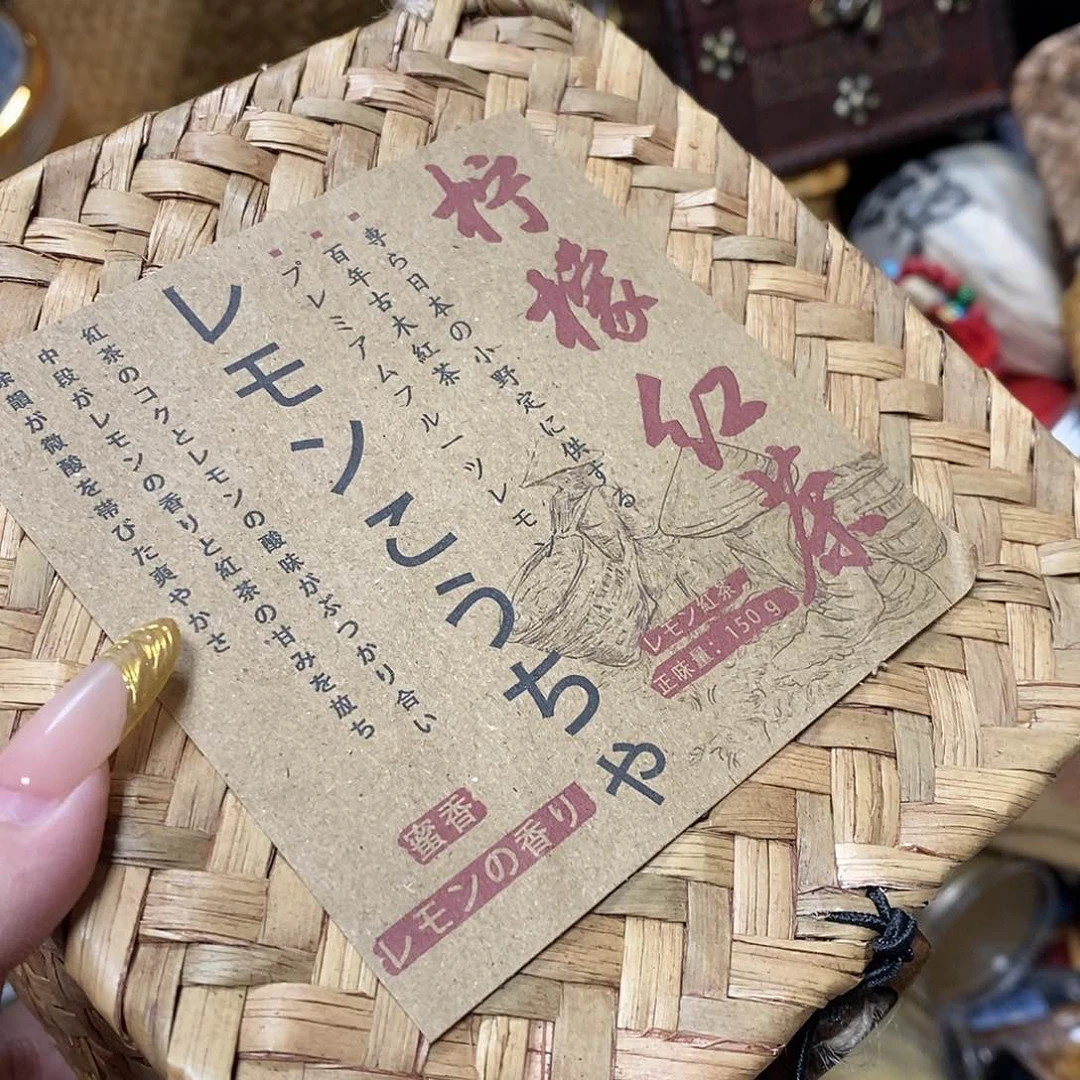 柠檬红茶
専ら日本の小野定に供する
百年古木紅茶
プレミアムフルーツレモン
レモンこうちゃ
紅茶のコクとレモンの酸味がぶつかり合い
中段がレモンの香りと紅茶の甘みを放ち
余韻が微酸を帯びた爽やかさ
レモン紅茶
正味量：150g
蜜香
レモンの香り